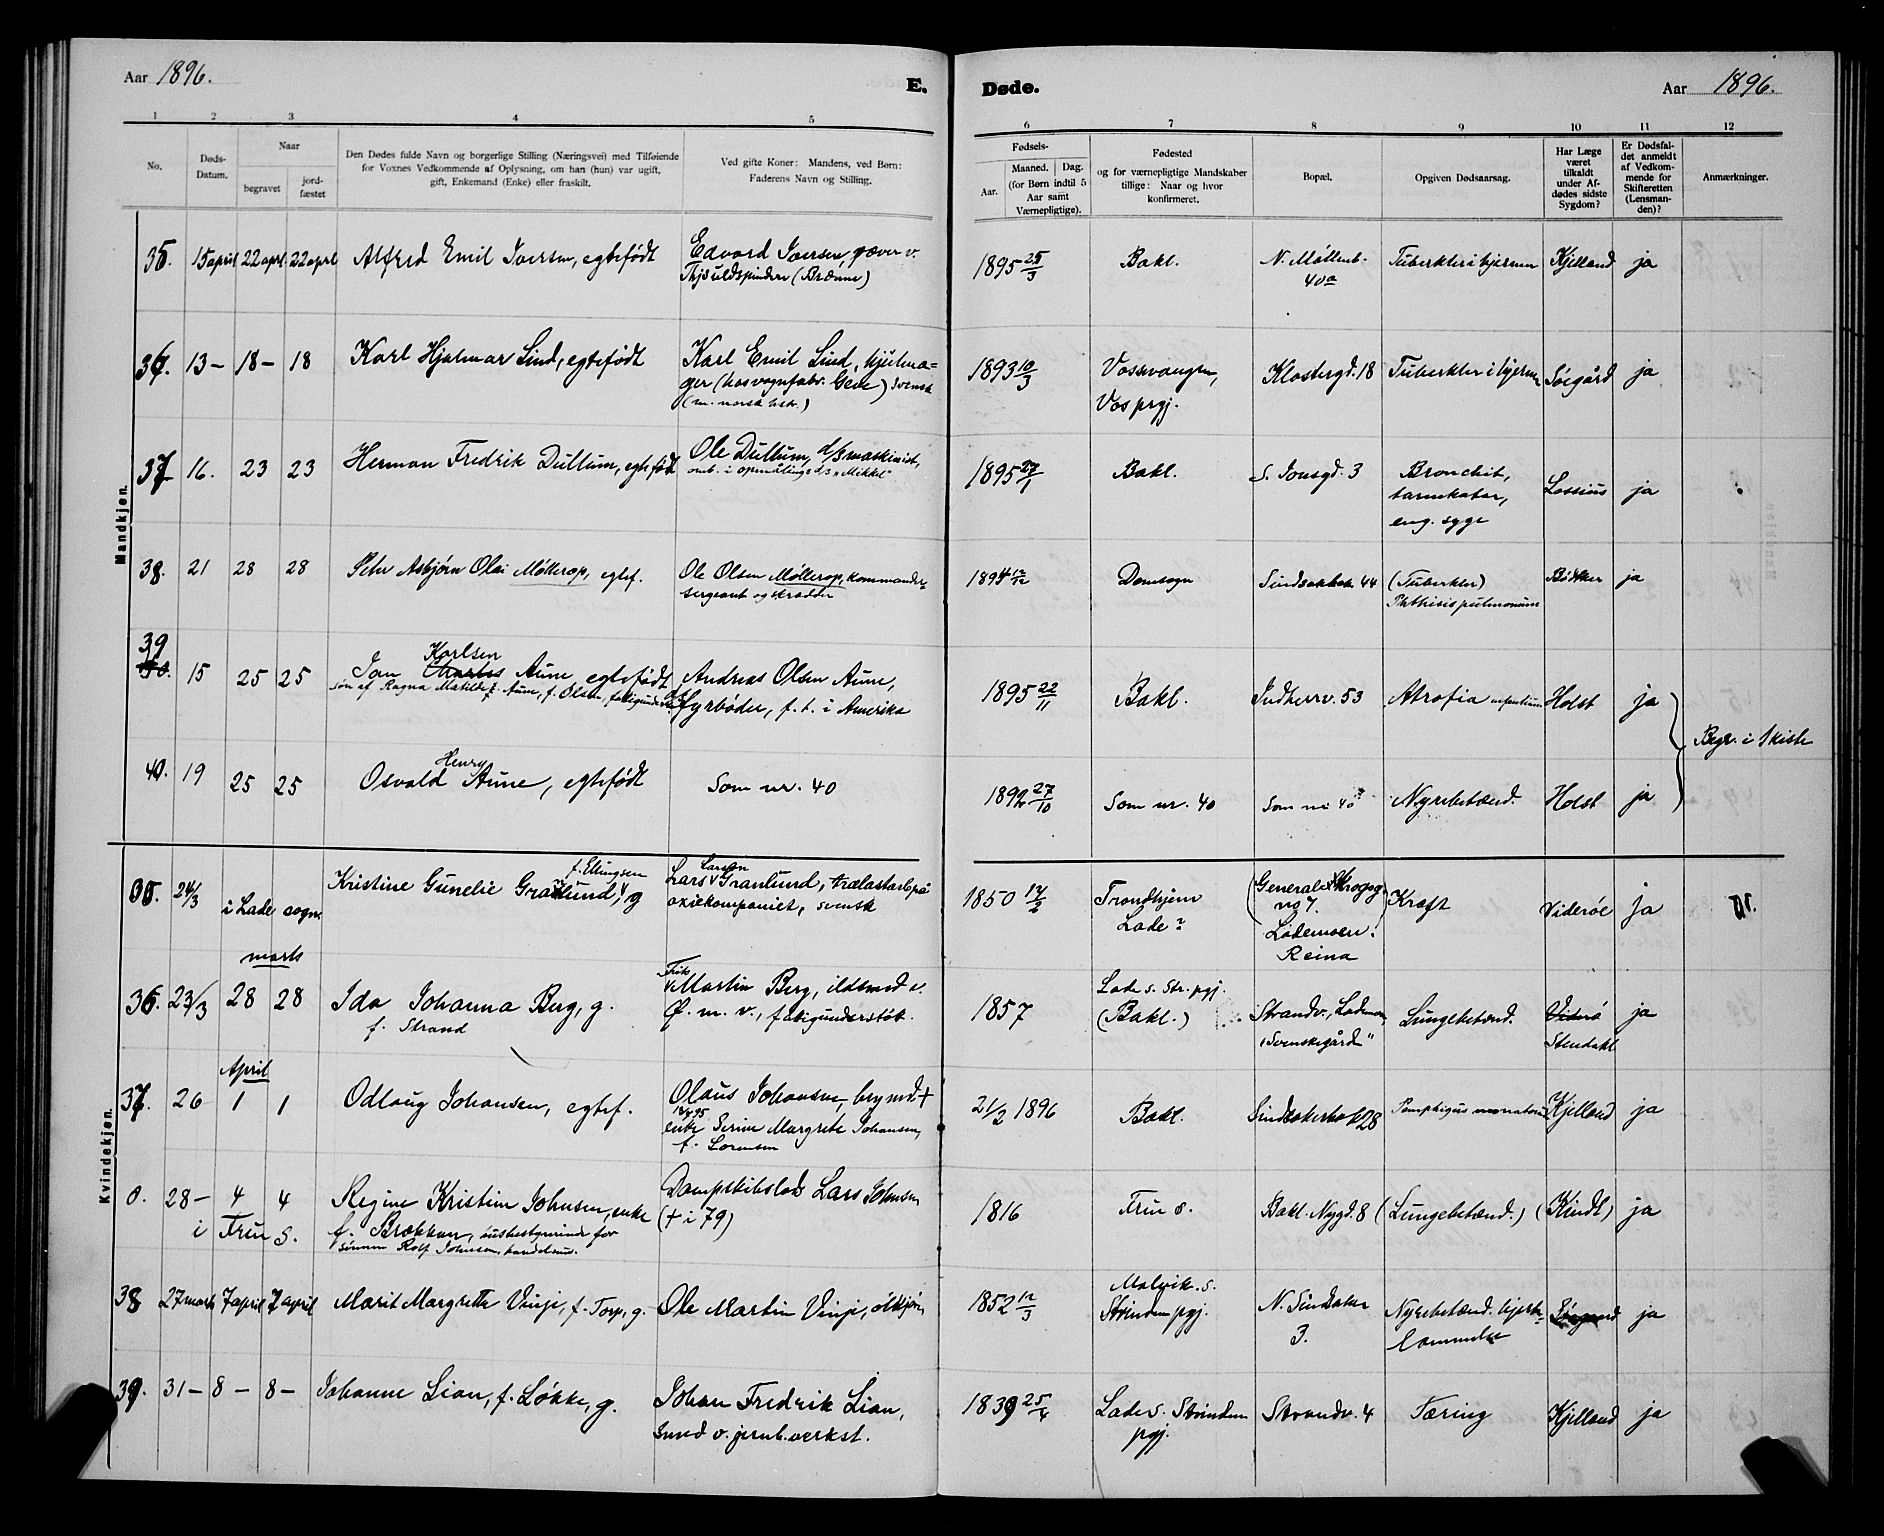 Aar 1896.
E.
Døde.
Aar 1896.
1 2 3 4 5 6 7 8 9 10 11 12
No.
Døds-Datum.
Naar
begravet
jord-fæstet
Den Dødes fulde Navn og borgerlige Stilling (Næringsvei) med Tilføiende
for Voxnes Vedkommende af Oplysning, om han (hun) var ugift,
gift, Enkemand (Enke) eller fraskilt.
Ved gifte Koner: Mandens, ved Børn:
Faderens Navn og Stilling.
Fødsels-
Aar.
Maaned. Dag.
(for Børn indtil 5
Aar samt
Værnepligtige).
Fødested
og for værnepligtige Mandskaber
tillige: Naar og hvor
konfirmeret.
Bopæl.
Opgiven Dødsaarsag.
Har Læge
været
tilkaldt
under Af-
dødes sidste
Sygdom?
Er Dødsfal-
det anmeldt
af Vedkom-
mende for
Skifteretten
(Lensman-
den)?
Anmærkninger.
Mandkjøn.
35. 15 april 22 apri. 22 april Alfred Emil Iversen, egtefødt Edvard Iversen, væver v. 1895 25/3 Bakl. N. Møllenb. Tuberkler i hjernen Kjelland ja
Thjs uldspinderi (Brænne) 40a
36. 13 – 18 – 18 Karl Hjalmar Lind, egtefødt Karl Emil Lind, hjulma- 1893 10/3 Vossvangen, Klostergd. 18 Tuberkler i hjernen Søegård ja
ger (hos vognfabr. Gede) svensk Vos prgj.
(m. norsk hstr.)
37 16. 23 23 Herman Fredrik Dullum, egtefødt Ole Dullum, d/s maskinist, 1895 27/1 Bakl. S. Jonsgd. 3 Bronchit, Lossius ja
omb. i opmålings ds „Mikkel" tarmkatar,
eng. syge
38. 21 28 28 Peter Asbjørn Olai Møllerop, egtef. Ole Olsen Møllerop, kommander- 1894 12/12 Domsogn Sindsakerb. 44 (Tuberkler) Bødtker ja
sergeant og skrædder Phthisis pulmonum
39
Karlsen
15 25 25 Jon Charles Aune, egtefødt Andreas Olsen Aune, 1895 22/11 Bakl. Indherrv. 53 Atrofia infantum Holst ja
søn af Ragna Matilde Aune, f. Olsen, fattigunderst. fyrbøder, f. t. i Amerika
Begr. i 1 kiste
Henry
40. 19 25 25 Osvald Aune, egtefødt Som nr. 40 1892 27/10 Som nr. 40 Som nr 40? Nyrebetænd. Holst ja
Kvindekjøn.
f. Ellingsen
35. 24/3 i Lade sogn Kristine Gunelie Granlund, g Lars Larsen Granlund, trælastarb. på 1850 14/2 Trondhjem (General Krogsg. Kræft Viderøe ja
axiekompaniet, svensk Lade? no 7. Lademoen.
Reina
marts
36. 23/3 28 28 Ida Johanna Berg, g. Martin Berg, ildsmed v. 1857 Lade s. Str. pgj. Strandv., Lademoen, Lungebetænd. Viderø ja
f. Strand Ø. m. v., fattigunderstøt. (Bakl.) „Svenskegård" Stendahl
April
37. 26 1 1 Odlaug Johansen, egtef. Olaus Johansen, brymd. + 21/2 1896 Bakl. Sindsakerbak 28 Pemphigus neonatorum Kjelland ja
1895
enke Serine Margrete Johansen,
f. Lorensen
0. 28 – 4 4 Regine Kristine Johnsen, enke Dampskibslods Lars Johnsen 1816 Frue s. Bakl. Nygd. 8 (Lungebetænd.) (Kindt) ja
i Frue s. f. Brækken, husbestyrerinde for (+ i 79)
sønnen Rolf Johnsen, handelsm.
38 27 marts 7 april 7 april Marit Margrethe Vinje, f. Torp, g. Ole Martin Vinje, ølkjører 1852 12/3 Malvik s. N. Sindsaker Nyrebetænd. hjerte- Søegaard ja
Strinden pgj. 3. lammelse
39. 31 – 8 – 8 – Johanne Lian, f. Løkke, g. Johan Fredrik Lian, 1839 25/4 Lade s. Strinden Strandv. 4 Tæring Kjelland ja
smed v. jernb. verkst. pgj.